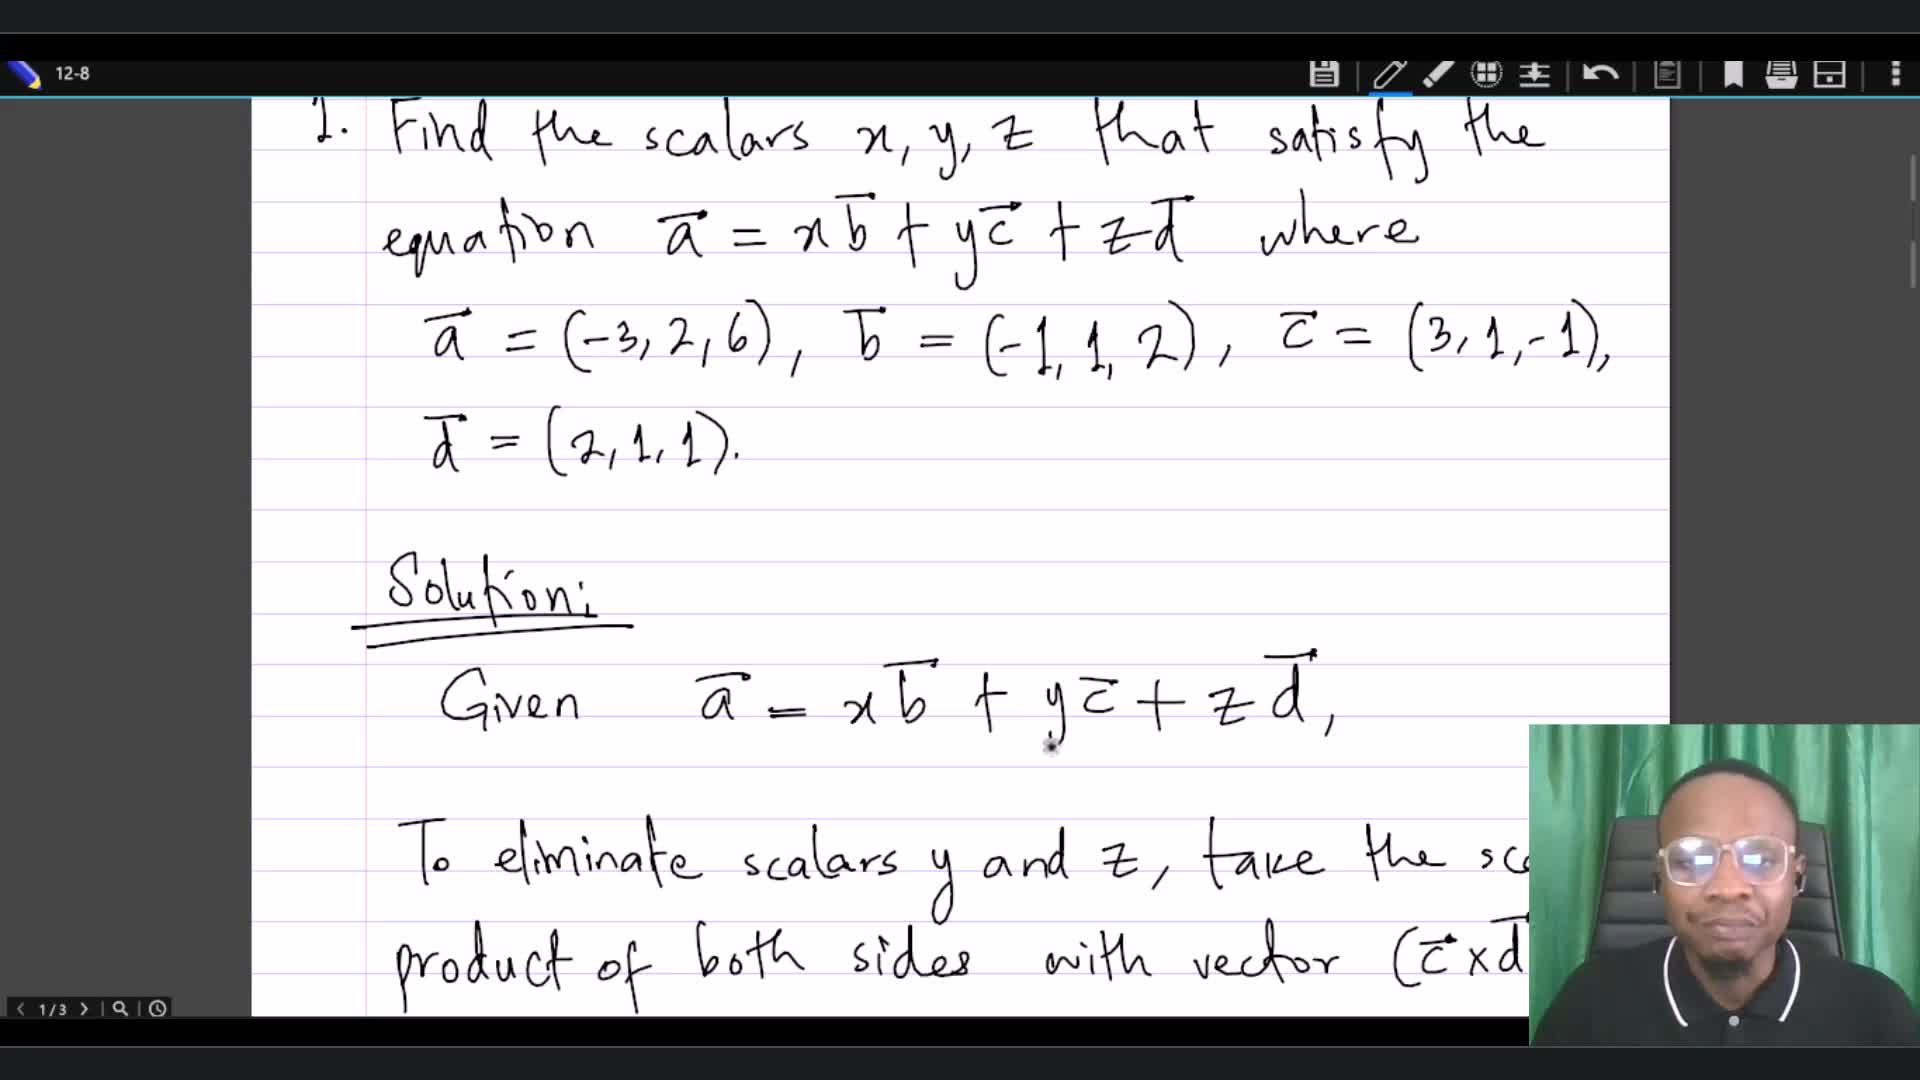 12-8
1. Find the scalars x, y, z that satisfy the
equation a⃗ = xb⃗ + yc⃗ + zd⃗ where
a⃗ = (-3, 2, 6), b⃗ = (-1, 1, 2), c⃗ = (3, 1, -1),
d⃗ = (2, 1, 1).
Solution:
Given a⃗ = xb⃗ + yc⃗ + zd⃗,
To eliminate scalars y and z, take the
product of both sides with vector (c⃗ x d⃗
1/3